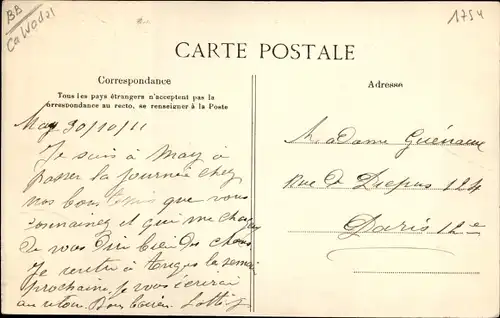 BB
Calvados
1754
CARTE POSTALE
Correspondance
Tous les pays étrangers n'acceptent pas la
correspondance au recto, se renseigner à la Poste
Adresse
May 30/10/11
Je suis à May à
passer la journée chez
nos bons amis que vous
connaissez et qui me charge
de vous dire bien des choses
Je rentre à la semaine
prochaine je vous écrirai
au retour. Bon baiser.
Madame
Rue de Picpus 124
Paris 12e